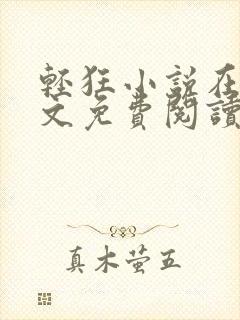 輕狂小說在
文免費閱讀
真木萤五